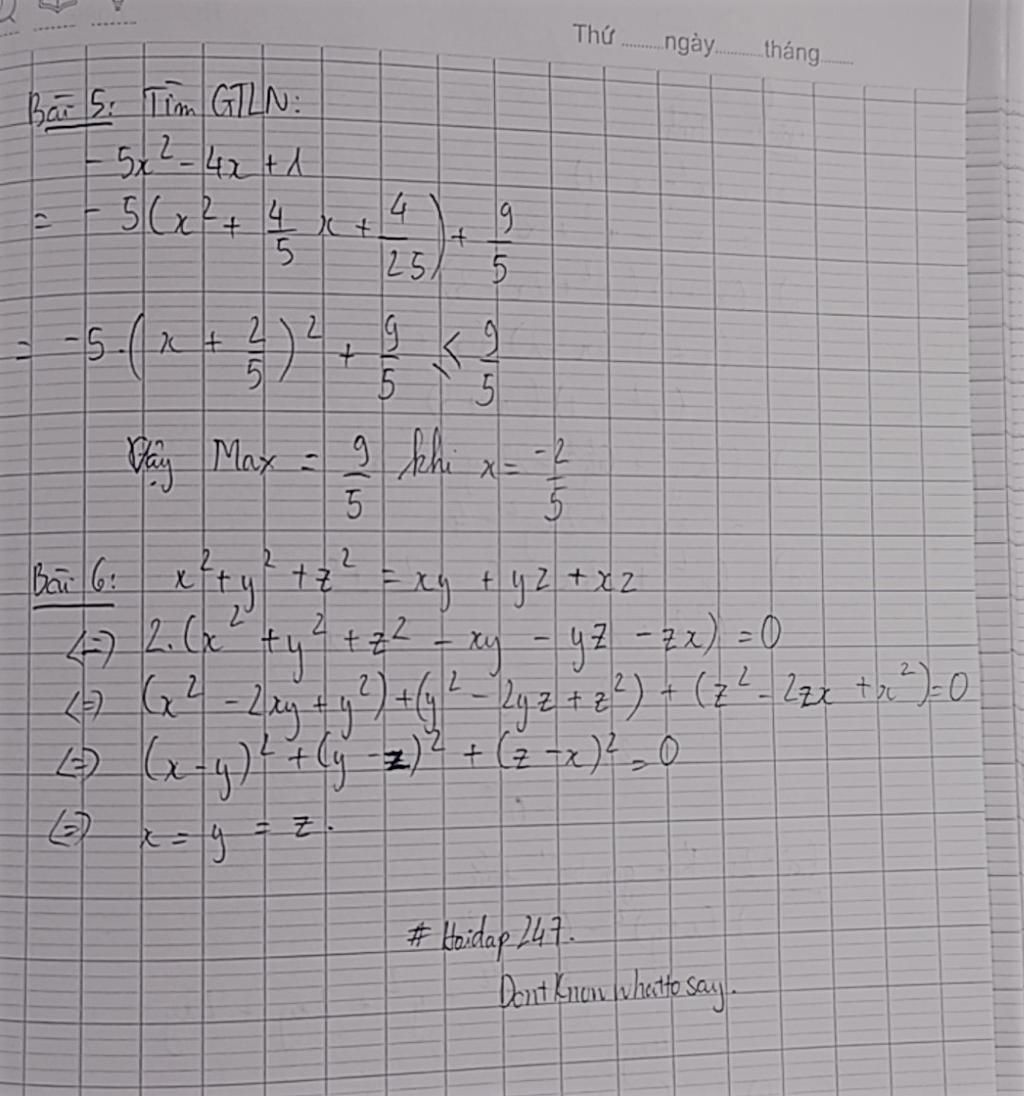 Thứ ........ngày.........tháng......
Bài 5: Tìm GTLN:
- 5x² - 4x + 1
= - 5(x² + 4/5 x + 4/25) + 9/5
= -5.(x + 2/5)² + 9/5 ≤ 9/5
Vậy Max = 9/5 khi x = -2/5
Bài 6: x² + y² + z² = xy + yz + xz
<=> 2.(x² + y² + z² - xy - yz - zx) = 0
<=> (x² - 2xy + y²) + (y² - 2yz + z²) + (z² - 2zx + x²) = 0
<=> (x - y)² + (y - z)² + (z - x)² = 0
<=> x = y = z.
# Hoidap 247.
Dont Know whatto say.